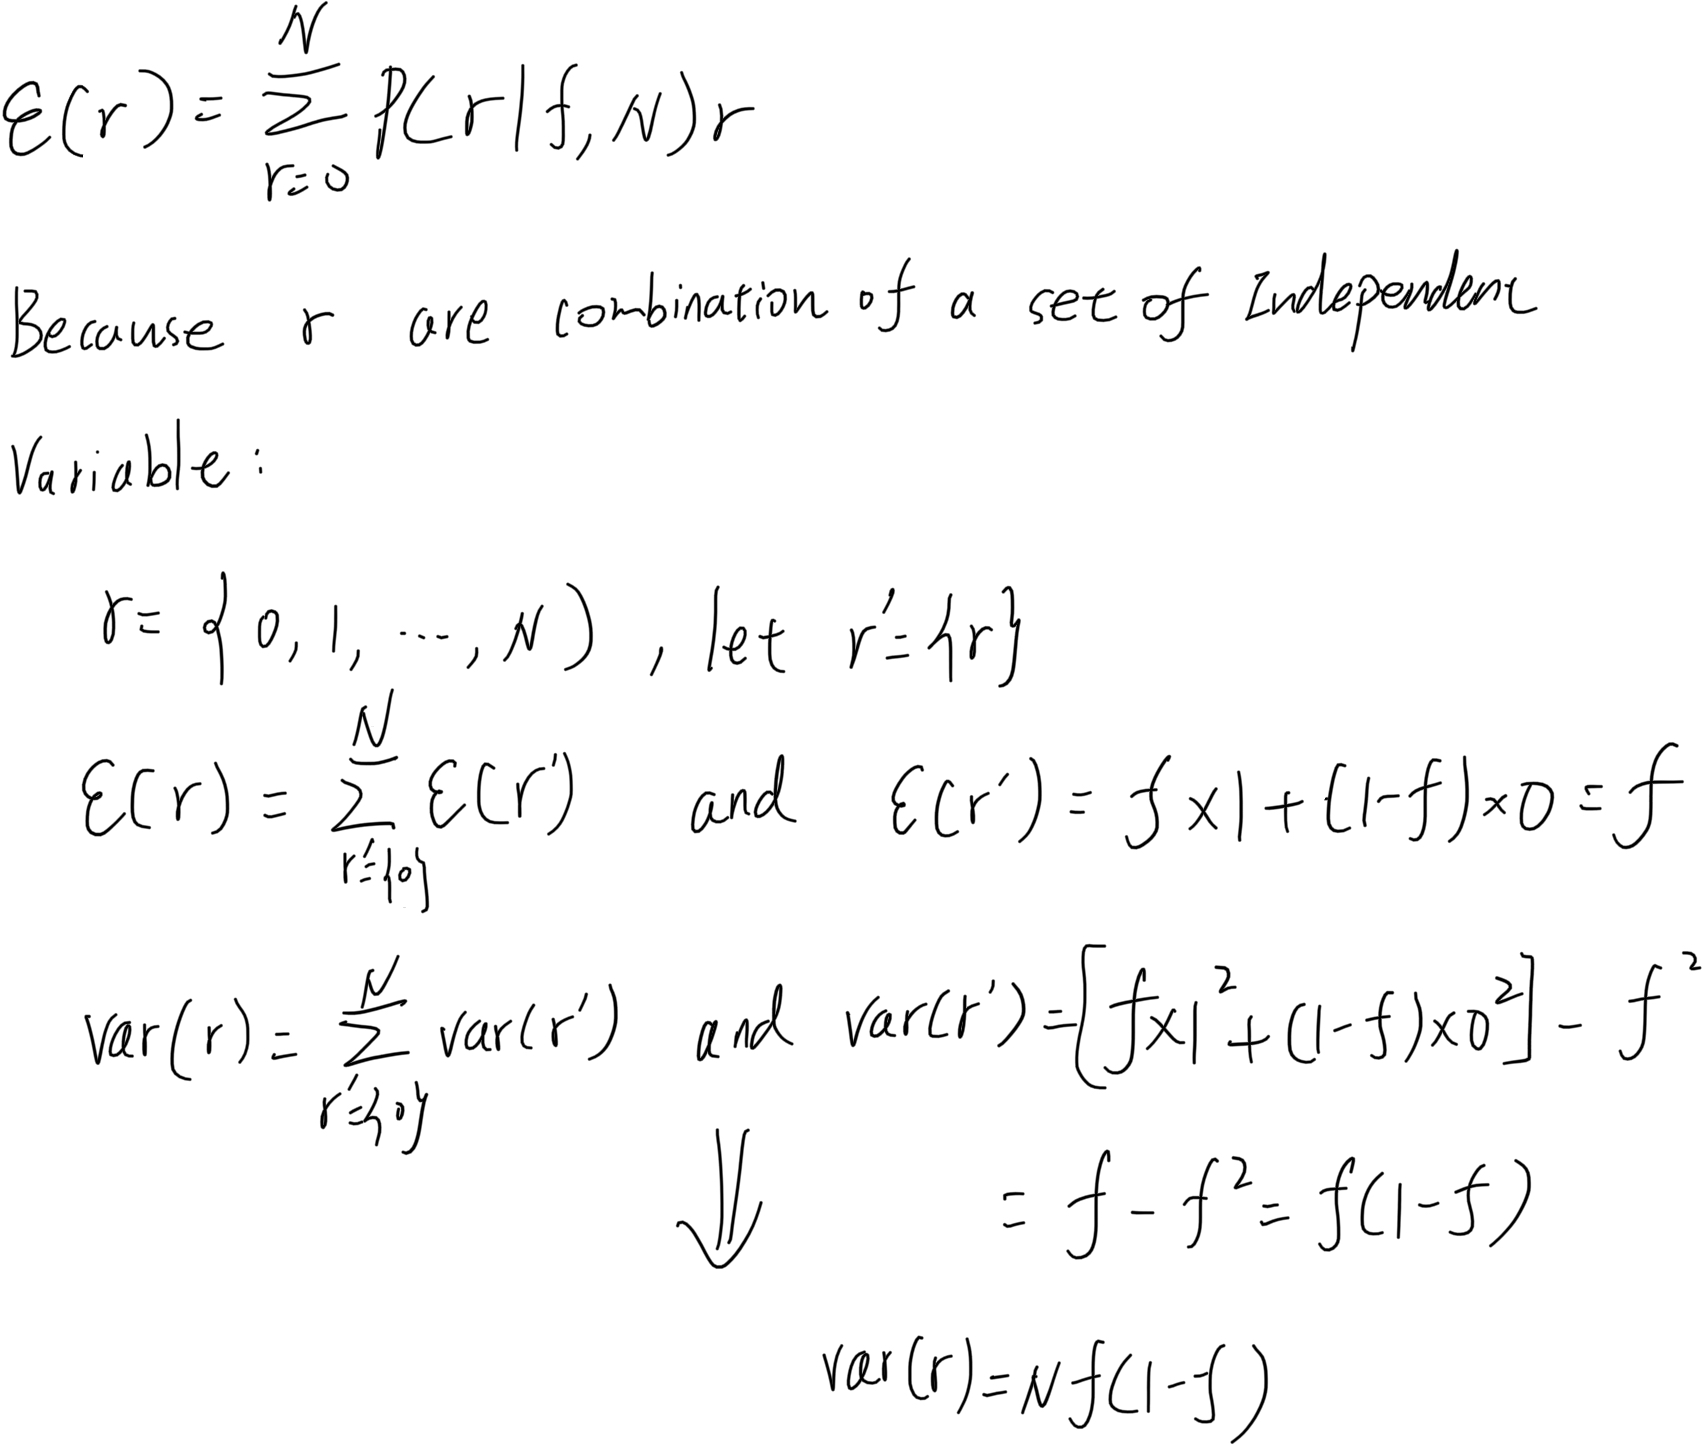 ℰ(r) = ∑_{r=0}^{N} P(r|f,N)r
Because r are combination of a set of Independent
Variable:
r = {0, 1, ..., N), let r' = {r}
ℰ(r) = ∑_{r'={0}}^{N} ℰ(r') and ℰ(r') = f×1+(1-f)×0 = f
var(r) = ∑_{r'={0}}^{N} var(r') and var(r') = [f×1²+(1-f)×0²] - f²
⇓ = f - f² = f(1-f)
var(r) = Nf(1-f)